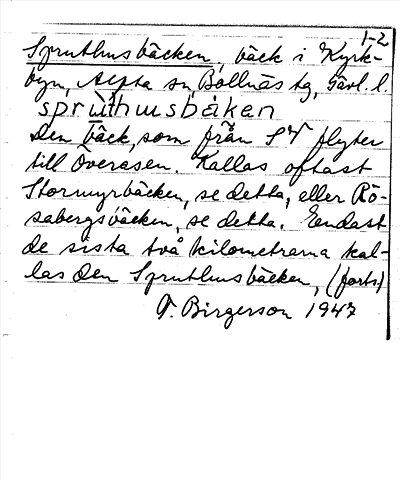 1-2
Spruthusbäcken, bäck i Kyrk-
byn, Alfta sn, Bollnäs tg, Gävl. l.
sprùthusbäken
Den bäck, som från SV flyter
till Överåsen. Kallas oftast
Stormyrbäcken, se detta, eller Rö-
sabergsbäcken, se detta. Endast
de sista två kilometrarna kal-
las den Spruthusbäcken, (forts)
F. Birgerson 1947